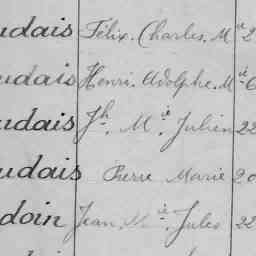 udais Félix. Charles. Mie 2
udais Henri. Adolphe. Mie 6
udais Jh. Mie. Julien 22
udais Pierre Marie 20
doin Jean. Mie. Jules 22